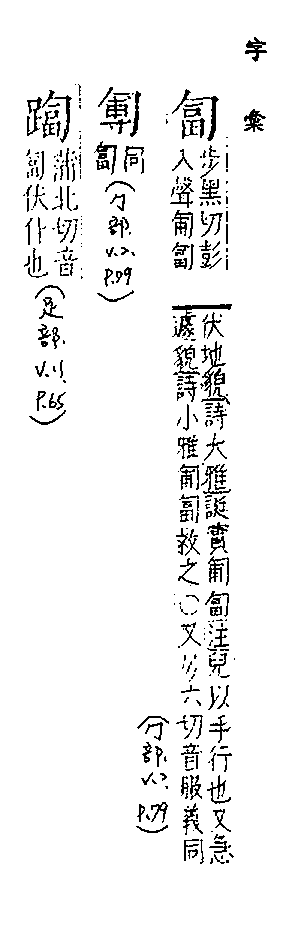 字彙
匐
步黑切彭
入聲匍匐
伏地貌詩大雅誕實匍匐注兒以手行也又急
遽貌詩小雅匍匐救之〇又 六切音服義同
(勹部. v.2. P.79)
同
匐
(勹部. v.2. P.79)
蒲北切音
匐伏仆也
(足部. v.11. P.65)